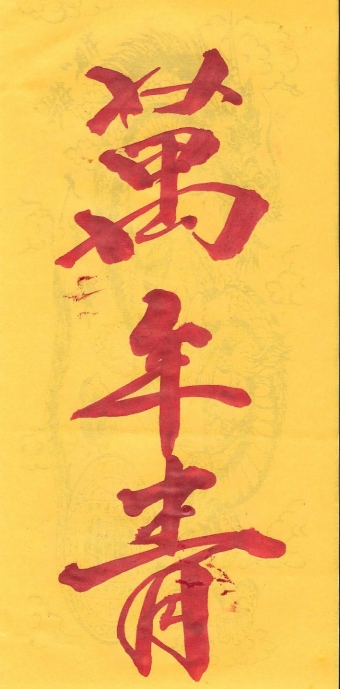 萬年青